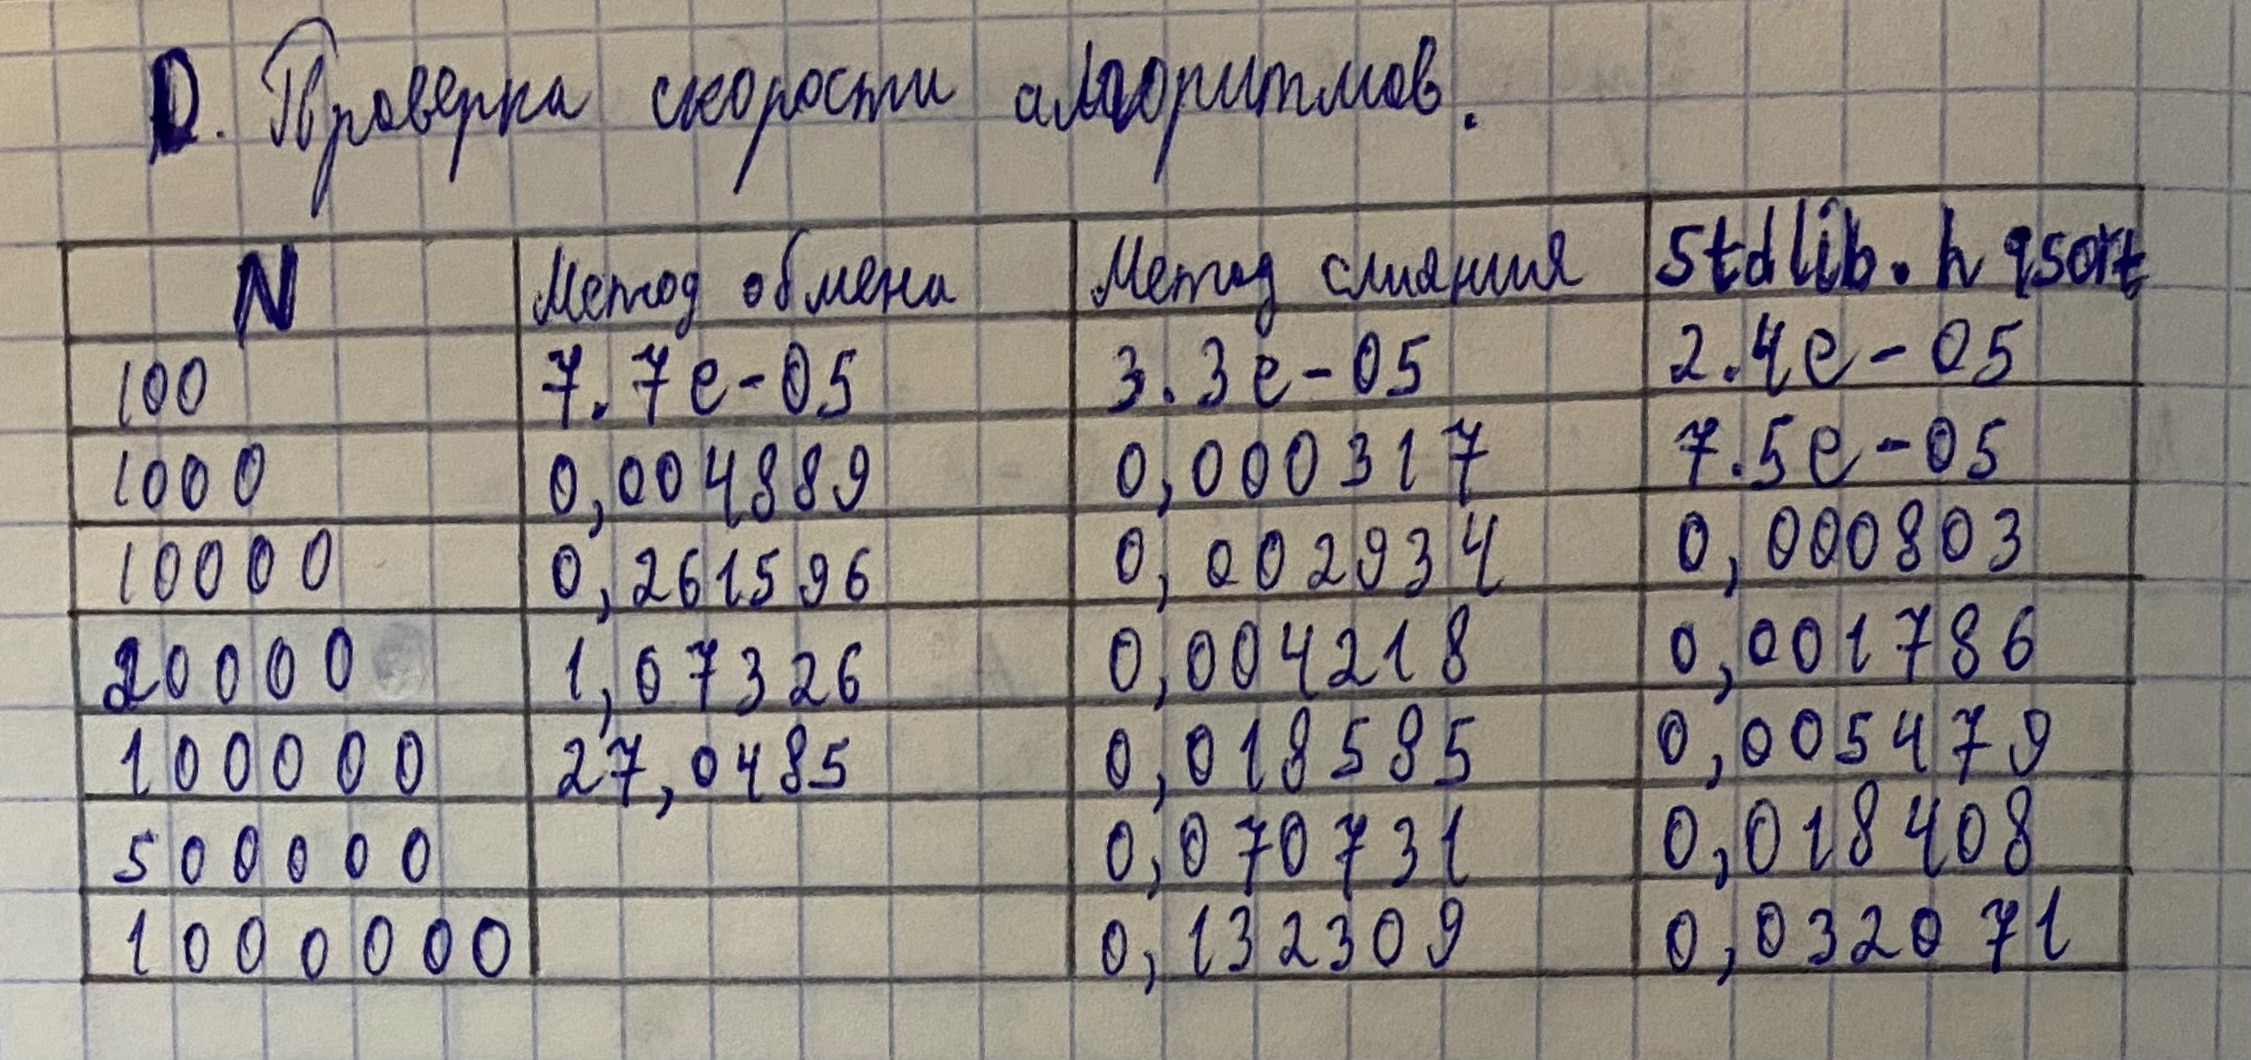 D. Проверка скорости алгоритмов.
N Метод обмена Метод слияния stdlib.h qsort
100 7.7e-05 3.3e-05 2.4e-05
1000 0,004889 0,000317 7.5e-05
10000 0,261596 0,002934 0,000803
20000 1,07326 0,004218 0,001786
100000 27,0485 0,018585 0,005479
500000 0,070731 0,018408
1000000 0,132309 0,032071